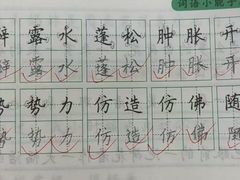 词语小能手
露水 蓬松 肿胀 开
露水 蓬松 肿胀 开
势力 仿造 仿佛 随
势力 仿造 仿佛 随